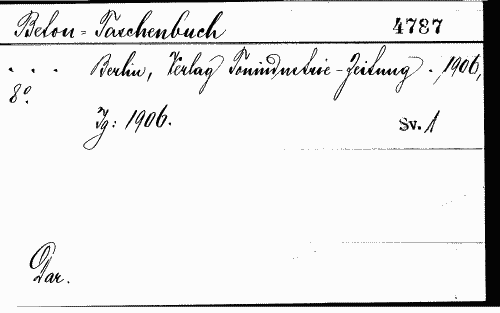 Beton-Taschenbuch 4787
. . . Berlin, Verlag Tonindustrie-Zeitung. 1906,
8°.
Jg: 1906. Sv. 1
Dar.